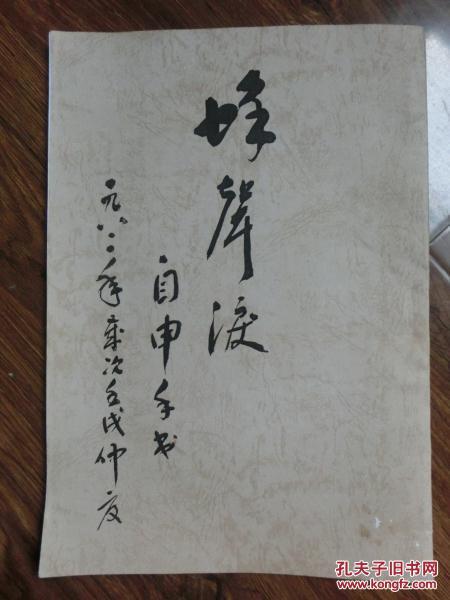 聲淚
自申手书
一九八二年歲次壬戌仲夏
孔夫子旧书网
www.kongfz.com